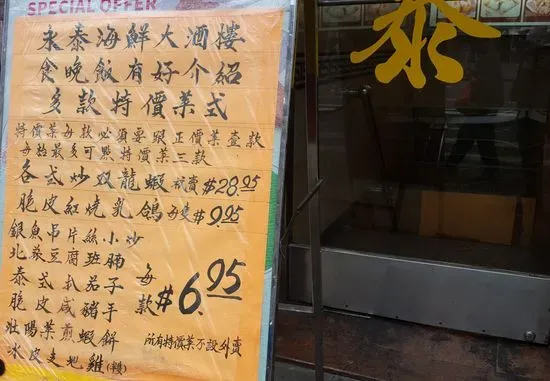 SPECIAL OFFER
永泰海鮮大酒樓
食晚飯有好介紹
多款特價菜式
特價菜每款必須要跟正價菜壹款
每枱最多可點特價菜三款
各式炒双龍蝦 祇賣$28.95
脆皮紅燒乳鴿 每隻$9.95
銀魚吊片絲小炒
北菜豆腐班腩
泰式扒茄子
脆皮咸豬手
壯陽菜煎蝦餅
水皮走地雞
每款$6.95
所有特價菜不設外賣
泰